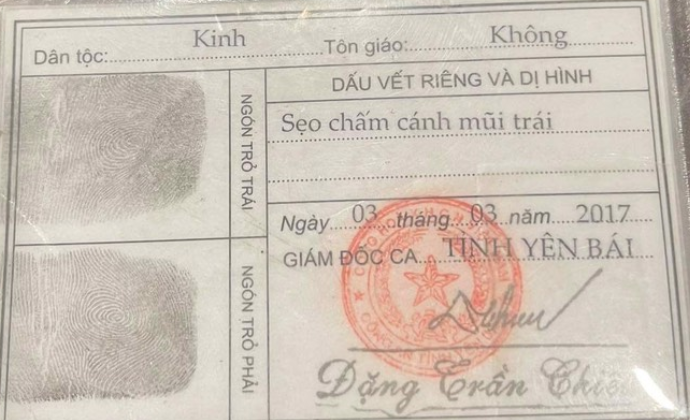 Dân tộc: Kinh Tôn giáo: Không
NGÓN TRỎ TRÁI
DẤU VẾT RIÊNG VÀ DỊ HÌNH
Sẹo chấm cánh mũi trái
Ngày 03 tháng 03 năm 2017
GIÁM ĐỐC CA TỈNH YÊN BÁI
NGÓN TRỎ PHẢI
Đặng Trần